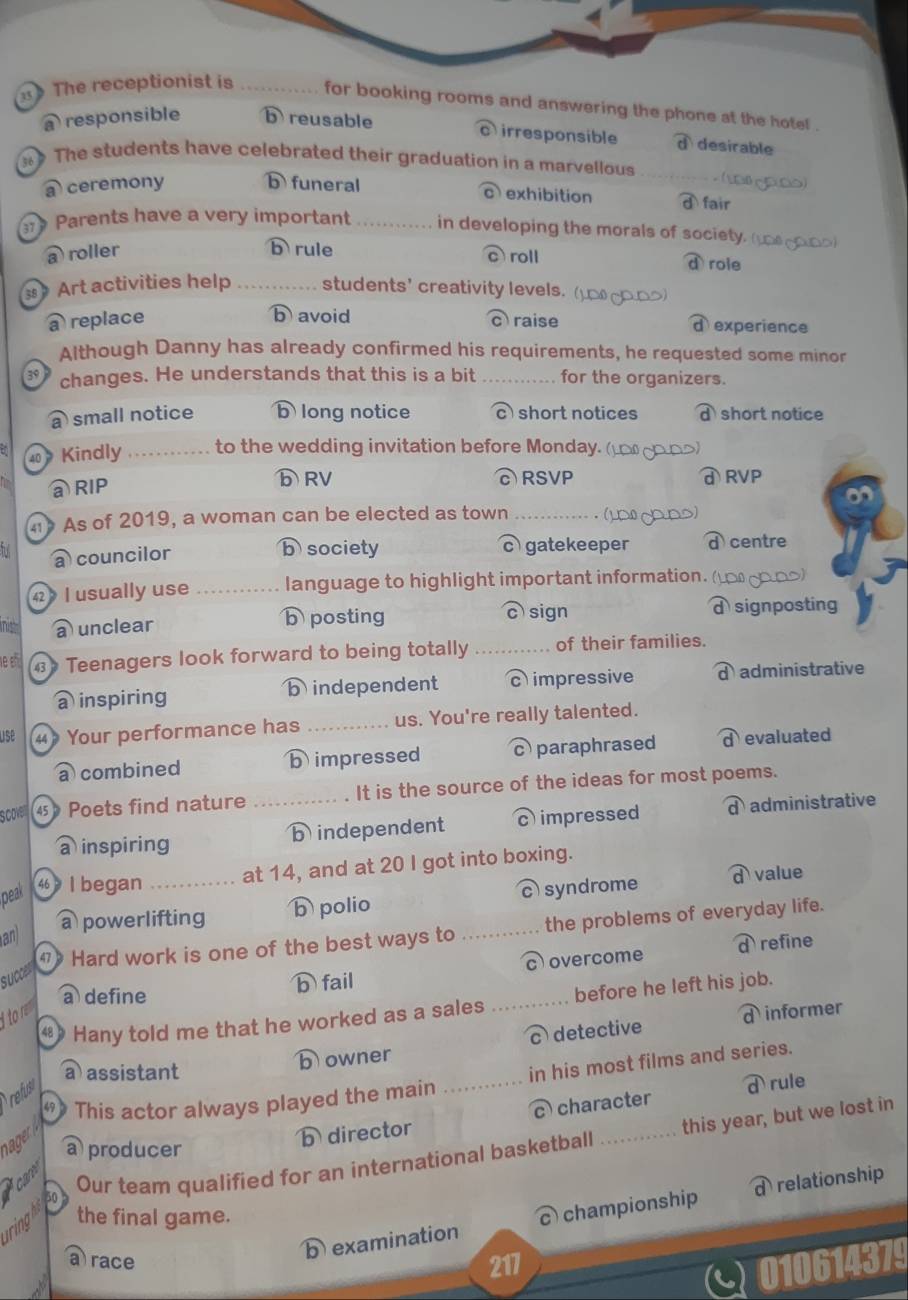 35 The receptionist is ............ for booking rooms and answering the phone at the hotel .
a responsible b reusable c irresponsible d desirable
36 The students have celebrated their graduation in a marvellous ............ .
a ceremony b funeral c exhibition d fair
37 Parents have a very important ............ in developing the morals of society.
a roller b rule c roll d role
38 Art activities help ............ students' creativity levels.
a replace b avoid c raise d experience
39 Although Danny has already confirmed his requirements, he requested some minor
changes. He understands that this is a bit ............ for the organizers.
a small notice b long notice c short notices d short notice
40 Kindly ............ to the wedding invitation before Monday.
a RIP b RV c RSVP d RVP
41 As of 2019, a woman can be elected as town ............ .
a councilor b society c gatekeeper d centre
42 I usually use ............ language to highlight important information.
a unclear b posting c sign d signposting
43 Teenagers look forward to being totally ............ of their families.
a inspiring b independent c impressive d administrative
44 Your performance has ............ us. You're really talented.
a combined b impressed c paraphrased d evaluated
45 Poets find nature ............ . It is the source of the ideas for most poems.
a inspiring b independent c impressed d administrative
46 I began ............ at 14, and at 20 I got into boxing.
a powerlifting b polio c syndrome d value
47 Hard work is one of the best ways to ............ the problems of everyday life.
a define b fail c overcome d refine
48 Hany told me that he worked as a sales ............ before he left his job.
a assistant b owner c detective d informer
49 This actor always played the main ............ in his most films and series.
a producer b director c character d rule
50 Our team qualified for an international basketball ............ this year, but we lost in
the final game.
a race b examination c championship d relationship
217
010614379